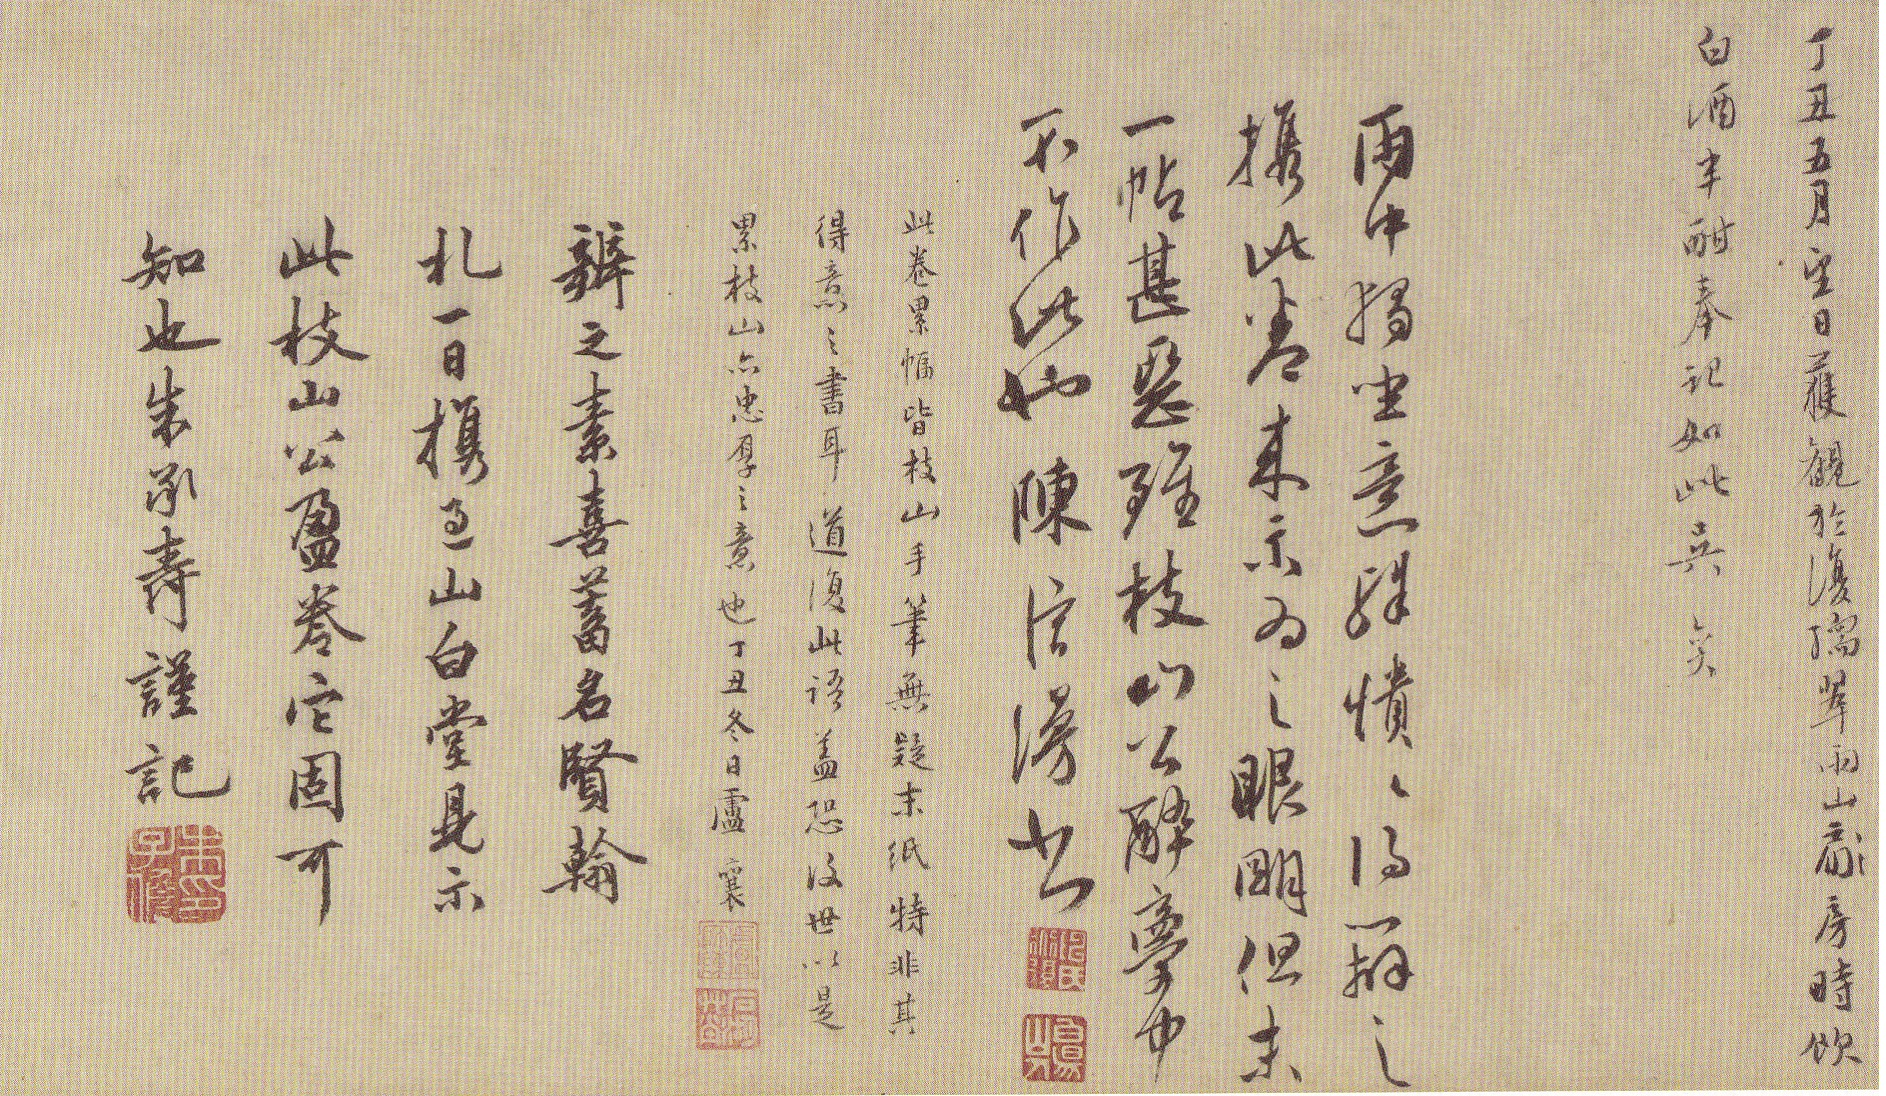 丁丑五月望日獲觀於復孺翠雨山齋房時飲
白酒半酣奉記如此吳奕
雨中獨坐意殊憒〻得辯之
攜此卷来示為之眼明但末
一帖甚惡雖枝山公醉夢中
不作此也陳淳漫書
此卷累幅皆枝山手筆無疑末紙特非其
得意之書耳道復此語盖恐後世以是
累枝山亦忠厚之意也丁丑冬日盧襄
辯之素喜蓄名賢翰
札一日攜过山白堂見示
此枝山公盈卷它固可
知也朱承壽謹記